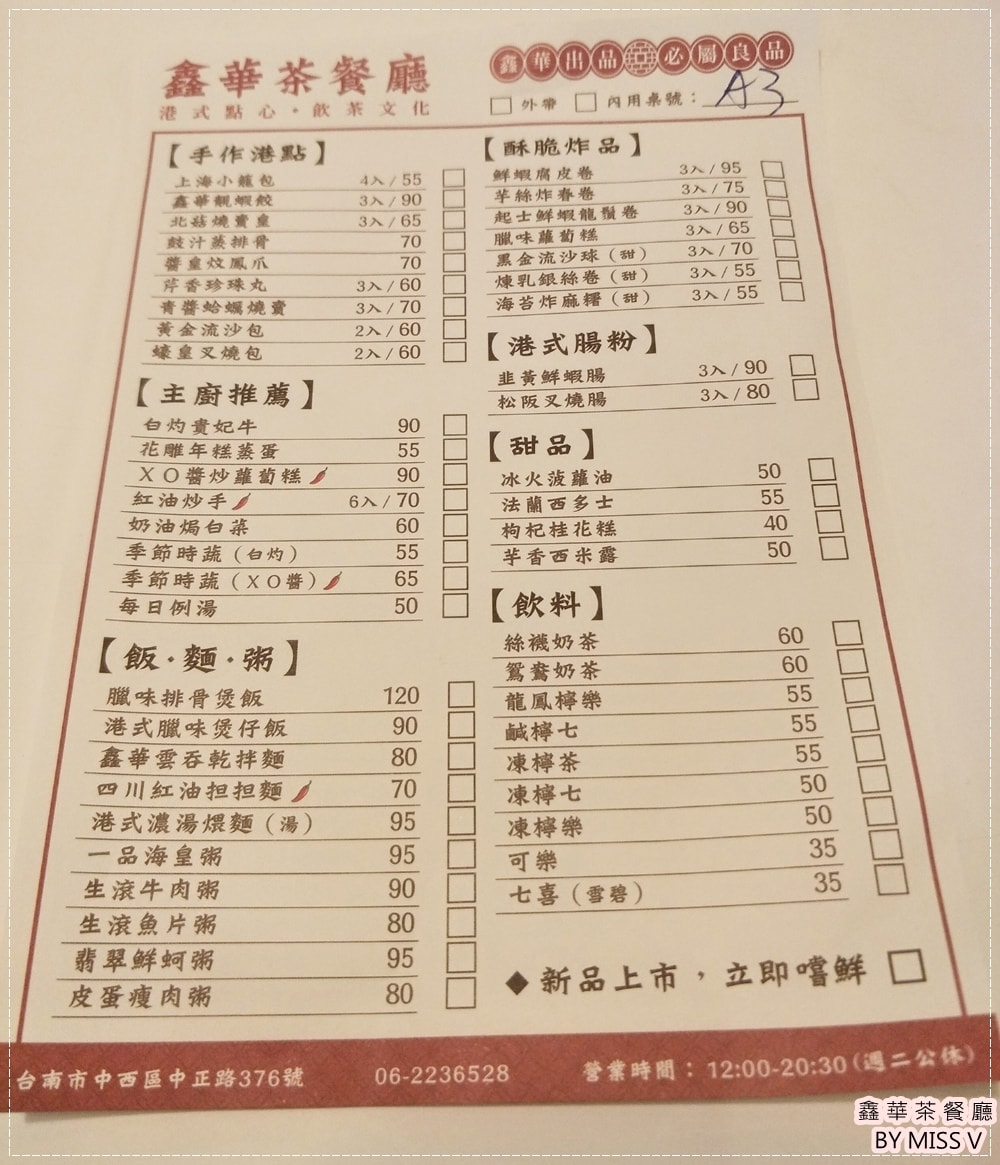 鑫華茶餐廳
港式點心・飲茶文化
鑫華出品 必屬良品
□外帶 □內用桌號：A3
【手作港點】
上海小籠包 4入/55
鑫華靚蝦餃 3入/90
北菇燒賣皇 3入/65
豉汁蒸排骨 70
醬皇炆鳳爪 70
芹香珍珠丸 3入/60
青醬蛤蠣燒賣 3入/70
黃金流沙包 2入/60
蠔皇叉燒包 2入/60
【主廚推薦】
白灼貴妃牛 90
花雕年糕蒸蛋 55
XO醬炒蘿蔔糕 90
紅油炒手 6入/70
奶油焗白菜 60
季節時蔬（白灼） 55
季節時蔬（XO醬） 65
每日例湯 50
【飯・麵・粥】
臘味排骨煲飯 120
港式臘味煲仔飯 90
鑫華雲吞乾拌麵 80
四川紅油担担麵 70
港式濃湯煨麵（湯） 95
一品海皇粥 95
生滾牛肉粥 90
生滾魚片粥 80
翡翠鮮蚵粥 95
皮蛋瘦肉粥 80
【酥脆炸品】
鮮蝦腐皮卷 3入/95
芋絲炸春卷 3入/75
起士鮮蝦龍鬚卷 3入/90
臘味蘿蔔糕 3入/65
黑金流沙球（甜） 3入/70
煉乳銀絲卷（甜） 3入/55
海苔炸麻糬（甜） 3入/55
【港式腸粉】
韭黃鮮蝦腸 3入/90
松阪叉燒腸 3入/80
【甜品】
冰火菠蘿油 50
法蘭西多士 55
枸杞桂花糕 40
芋香西米露 50
【飲料】
絲襪奶茶 60
鴛鴦奶茶 60
龍鳳檸樂 55
鹹檸七 55
凍檸茶 55
凍檸七 50
凍檸樂 50
可樂 35
七喜（雪碧） 35
◆新品上市，立即嚐鮮
台南市中西區中正路376號 06-2236528 營業時間：12:00-20:30(週二公休)
鑫華茶餐廳
BY MISS V